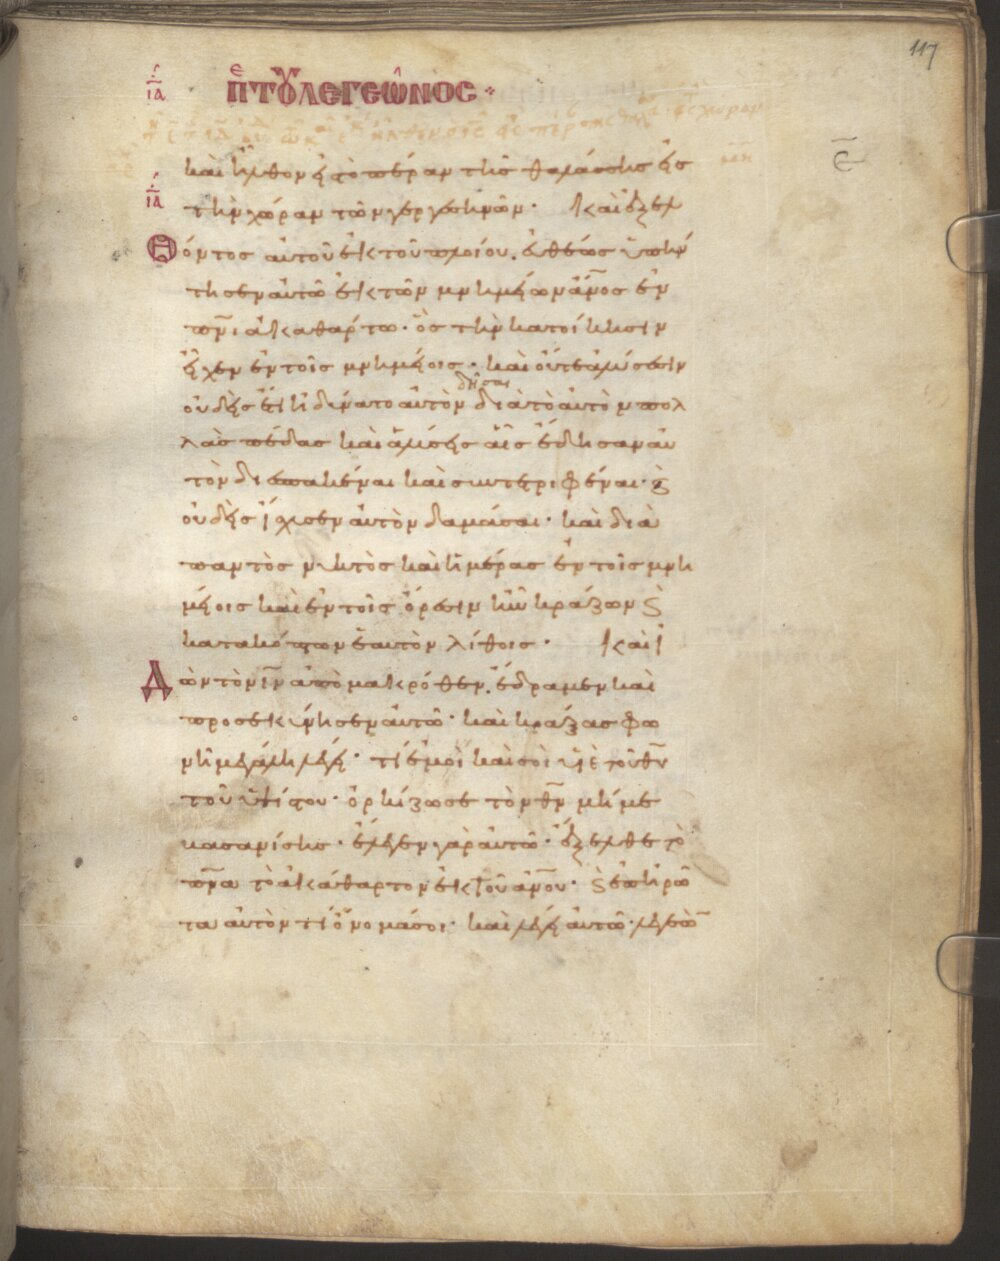 117
ια
ε περὶ τοῦ λεγεῶνος
ε̄
καὶ ἦλθον εἰς τὸ πέραν τῆς θαλάσσης εἰς
ια
τὴν χώραν τῶν γεργεσηνῶν· Καὶ ἐξελ
θόντος αὐτοῦ ἐκ τοῦ πλοίου, εὐθέως ὑπήν
τησεν αὐτῶ ἐκ τῶν μνημείων ἄνος̄ ἐν
πνῑ ἀκαθάρτω· ὃς τὴν κατοίκησιν
εἶχεν ἐν τοῖς μνημείοις· καὶ οὔτε ἁλύσεσιν
δῆσαι
οὐδεὶς ἔτι ἠδύνατο αὐτὸν διὰ τὸ αὐτὸν πολ
λὰς πέδας καὶ ἁλύσεις αἷς ἔδησαν αὐ
τὸν διεσπακέναι καὶ συντετριφέναι· ϗ
οὐδεὶς ἴσχυσεν αὐτὸν δαμάσαι· καὶ διὰ
παντὸς νυκτὸς καὶ ἡμέρας ἐν τοῖς μνη
μείοις καὶ ἐν τοῖς ὄρεσιν ἦν κράζων ϗ
κατακόπτων ἑαυτὸν λίθοις· Καὶ ἰ
δὼν τὸν ιν̄ ἀπὸ μακρόθεν, ἔδραμεν καὶ
προσεκύνησεν αὐτῶ· καὶ κράξας φω
νῆ μεγάλη λέγει· τί ἐμοὶ καὶ σοὶ ιῢ υἱὲ τοῦ θῡ
τοῦ ὑψίστου· ὁρκίζω σε τὸν θν̄ μή με
βασανίσης· ἔλεγεν γὰρ αὐτῶ· ἔξελθε τὸ
πνᾱ τὸ ἀκάθαρτον ἐκ τοῦ ἀνοῡ· ϗ ἐπηρώ
τα αὐτὸν τί ὄνομά σοι· καὶ λέγει αὐτῶ· λεγεὼ